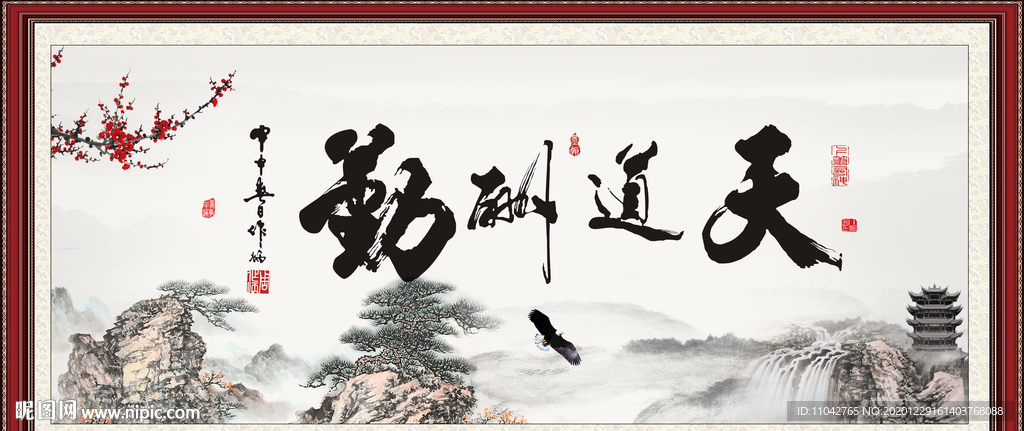 天道酬勤
昵图网 www.nipic.com
ID:11042765 NO:20201229161403768088